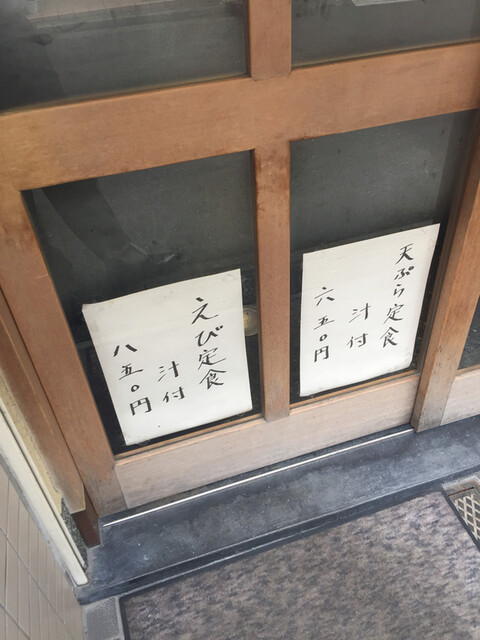 天ぷら定食
汁付
六五〇円
えび定食
汁付
八五〇円